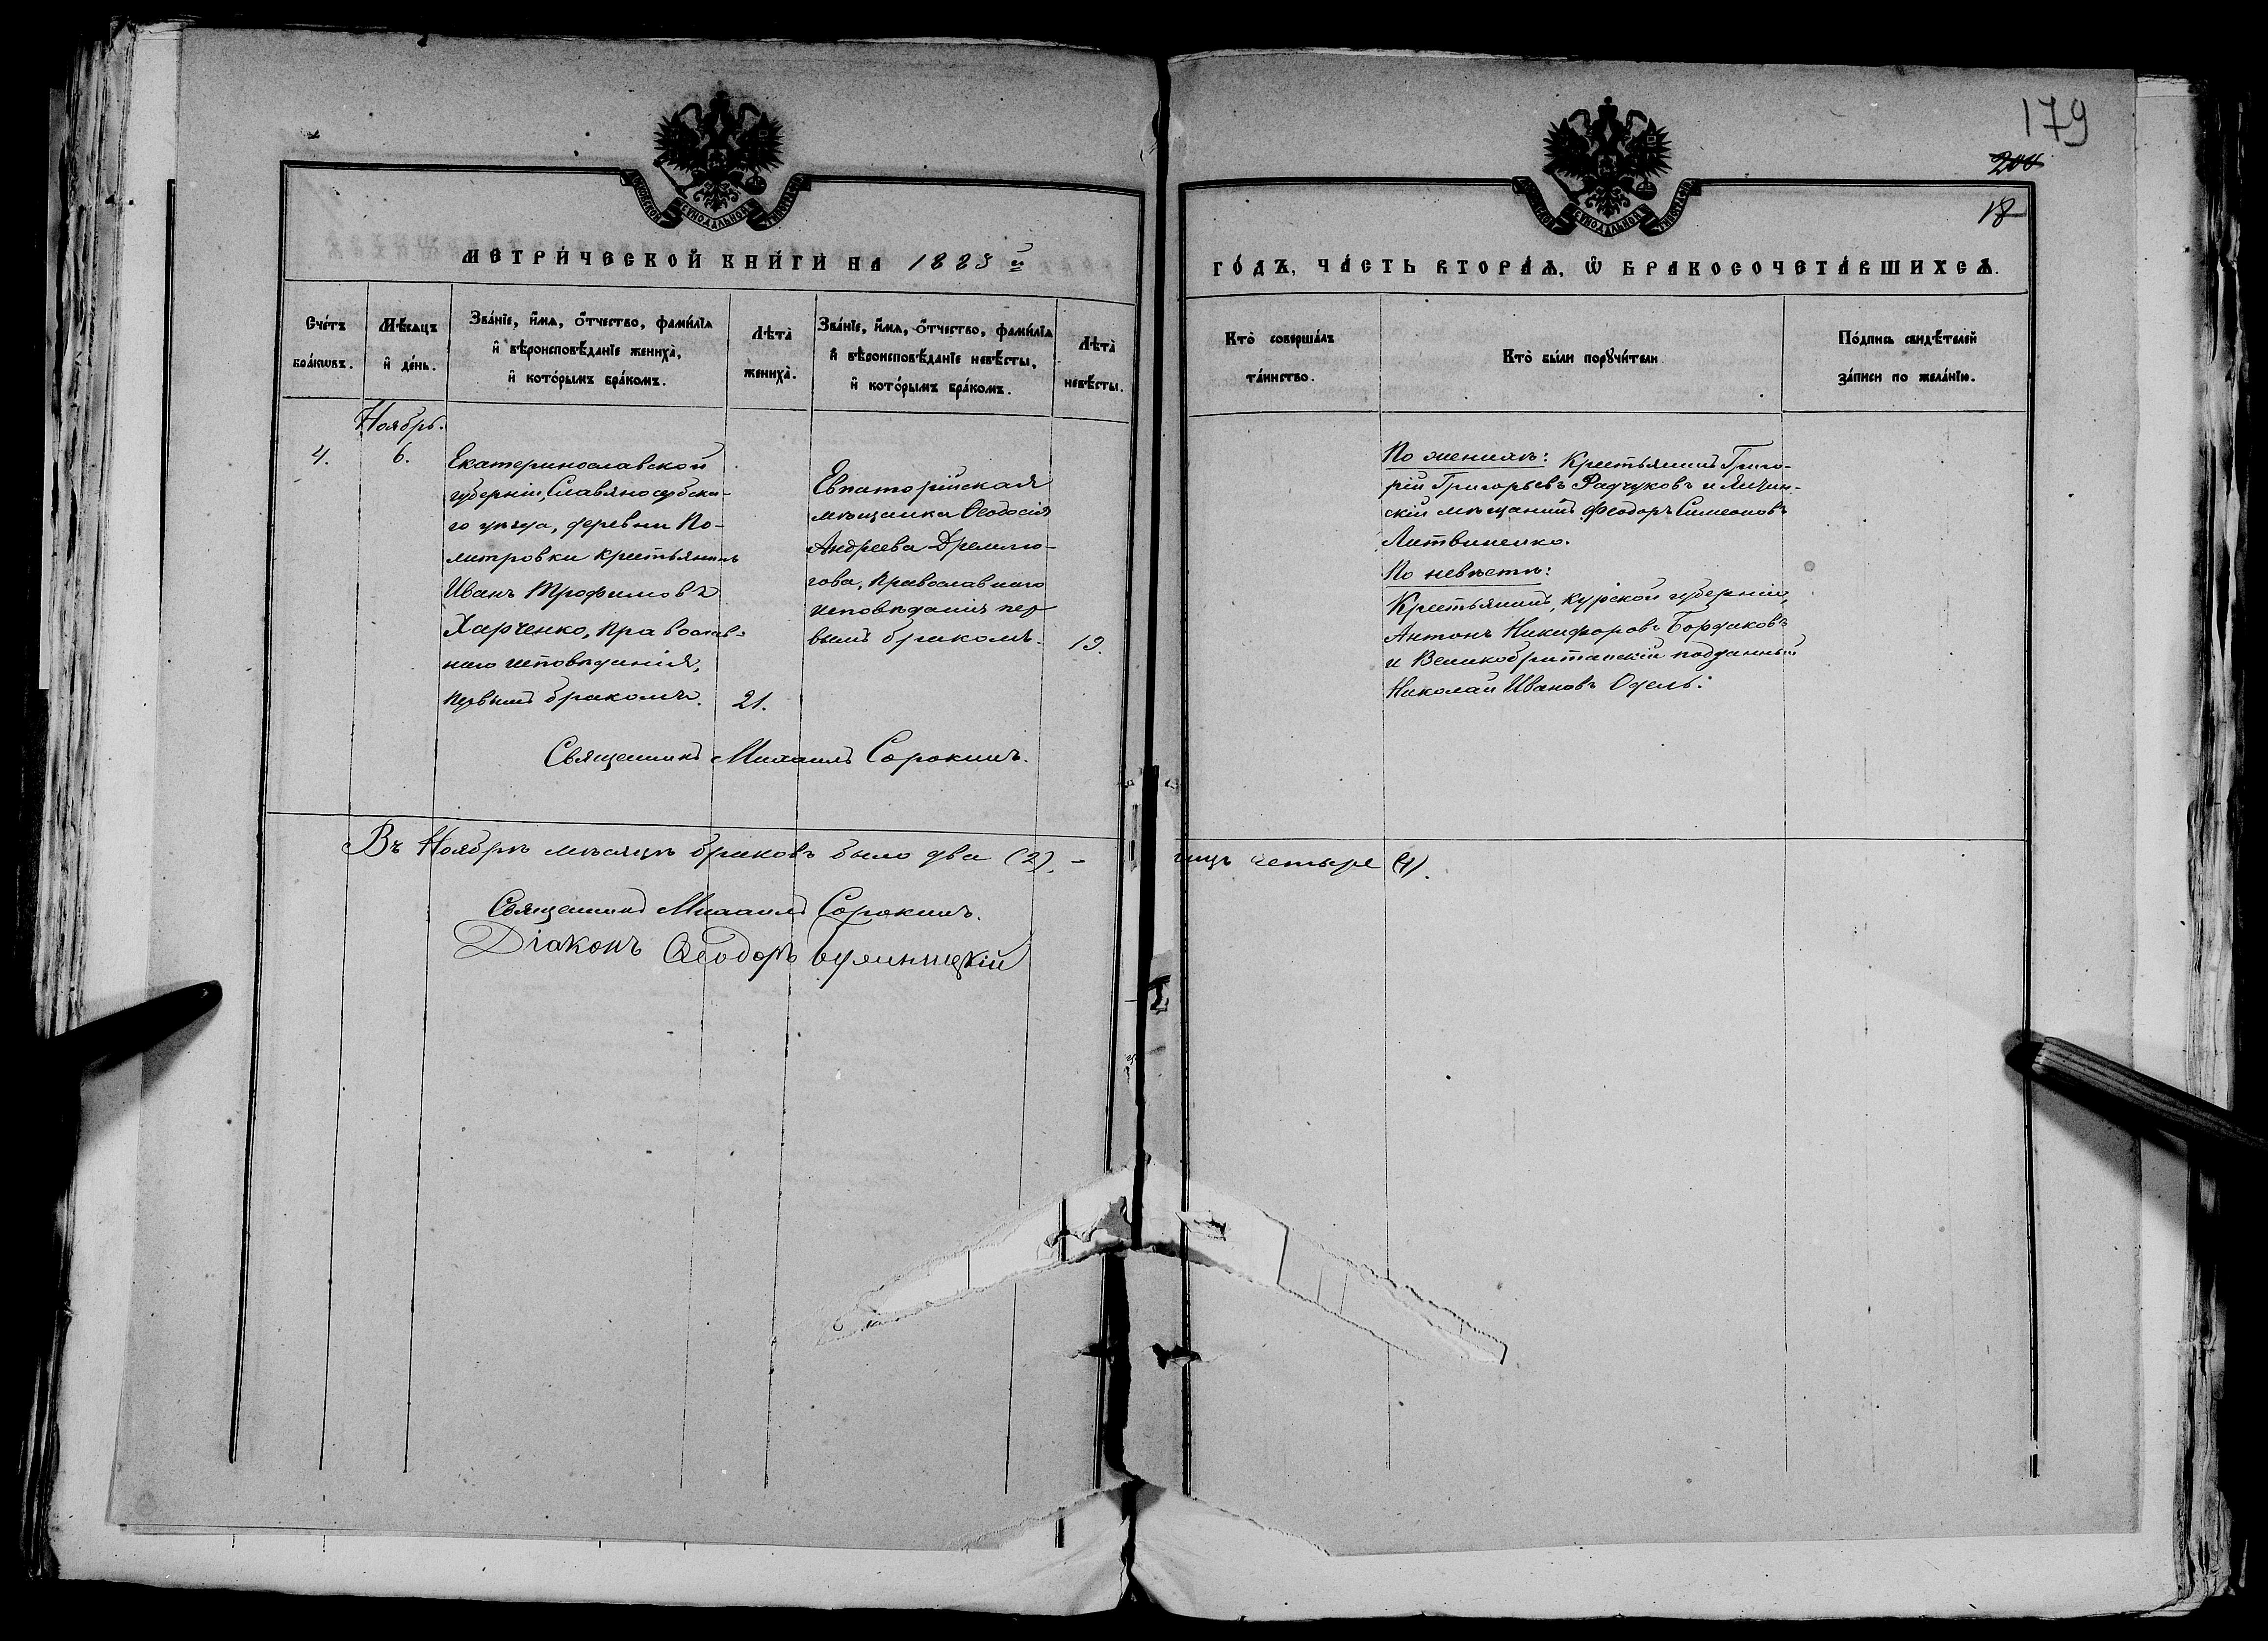 179
200
18
МЕТРИЧЕСКОЙ КНИГИ НА 1888 й
ГОДЪ, ЧАСТЬ ВТОРАЯ, Ѡ БРАКОСОЧЕТАВШИХСЯ.
Счетъ браковъ.
Мѣсяцъ и день.
Званіе, имя, отчество, фамилія
и вѣроисповѣданіе жениха,
и которымъ бракомъ.
Лѣта жениха.
Званіе, имя, отчество, фамилія
и вѣроисповѣданіе невѣсты,
и которымъ бракомъ.
Лѣта невѣсты.
Кто совершалъ
таинство.
Кто были поручители.
Подпись свидѣтелей
записи по желанію.
Ноябрь.
4.
6.
Екатеринославской
губерніи, Славяносербска-
го уѣзда, деревни
крестьянинъ
Иванъ Трофимовъ
Харченко, православ-
наго исповѣданія,
первымъ бракомъ.
21.
Евпаторійская
мѣщанка Ѳеодосія
Андреева Дремлю-
гова, православнаго
исповѣданія пер-
вымъ бракомъ.
19.
По женихѣ: Крестьянинъ Григо-
рій Григорьевъ Радчуковъ и
мѣщанинъ Феодоръ Симеоновъ
Литвиненко.
По невѣстѣ:
Крестьянинъ, Курской губерніи,
Антонъ Никифоровъ Бордаковъ
и Великобританскій подданный
Николай Ивановъ Одель.
Священникъ Михаилъ Сорокинъ.
Въ Ноябрѣ мѣсяцѣ браковъ было два (2). –
лицъ четыре (4).
Священникъ Михаилъ Сорокинъ.
Діаконъ Ѳеодоръ